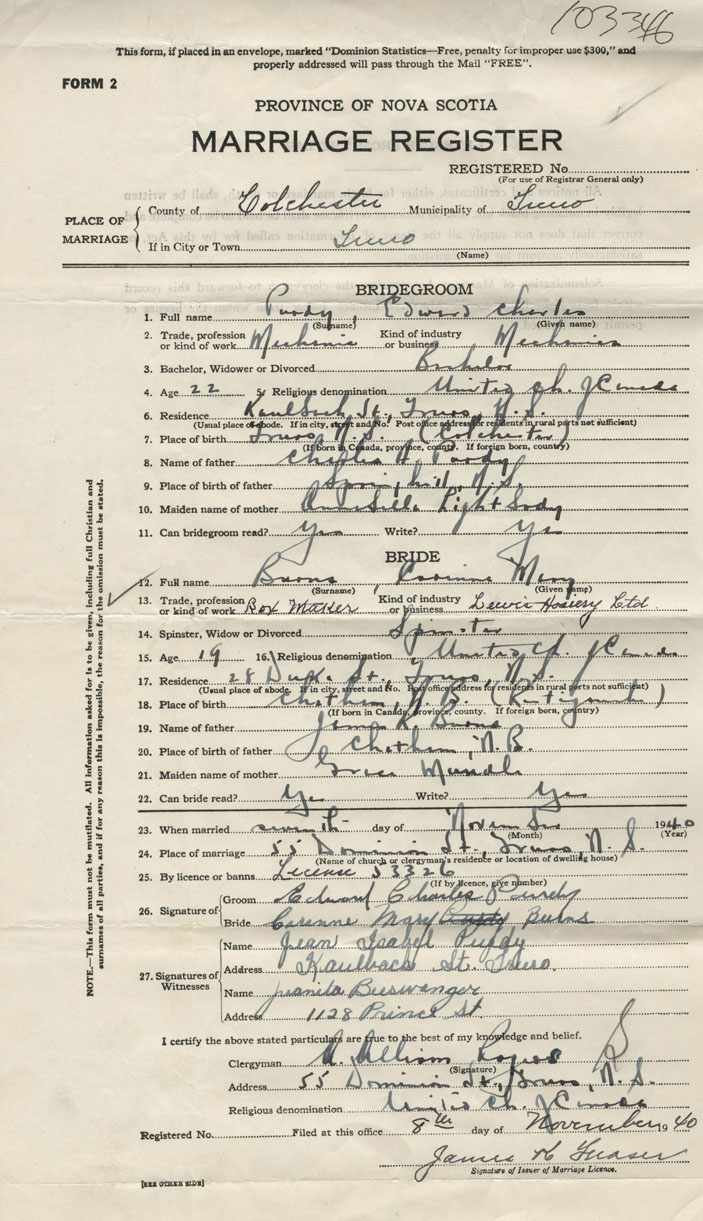 103346
This form, if placed in an envelope, marked "Dominion Statistics—Free, penalty for improper use $300," and
properly addressed will pass through the Mail "FREE".
FORM 2
PROVINCE OF NOVA SCOTIA
MARRIAGE REGISTER
REGISTERED No.
(For use of Registrar General only)
PLACE OF MARRIAGE
County of Colchester Municipality of Truro
If in City or Town Truro
(Name)
BRIDEGROOM
1. Full name Purdy, Edward Charles
(Surname) (Given name)
2. Trade, profession or kind of work Mechanic Kind of industry or business Mechanics
3. Bachelor, Widower or Divorced Bachelor
4. Age 22 5. Religious denomination United Ch. of Canada
6. Residence Kaulback St., Truro, N.S.
(Usual place of abode. If in city, street and No. Post office address for residents in rural parts not sufficient)
7. Place of birth Truro N.S. (Colchester)
(If born in Canada, province, county. If foreign born, country)
8. Name of father Charles H. Purdy
9. Place of birth of father Springhill, N.S.
10. Maiden name of mother Annabella Lightbody
11. Can bridegroom read? Yes Write? Yes
BRIDE
12. Full name Burns, Corinne Mary
(Surname) (Given name)
13. Trade, profession or kind of work Box Maker Kind of industry or business Lewis Hosiery Ltd.
14. Spinster, Widow or Divorced Spinster
15. Age 19 16. Religious denomination United Ch. of Canada
17. Residence 28 Duke St., Truro, N.S.
(Usual place of abode. If in city, street and No. Post office address for residents in rural parts not sufficient)
18. Place of birth Chatham, N.B.
(If born in Canada, province, county. If foreign born, country)
19. Name of father James R. Burns
20. Place of birth of father Chatham, N.B.
21. Maiden name of mother Grace Mundle
22. Can bride read? Yes Write? Yes
23. When married seventh day of November 1940
(Month) (Year)
24. Place of marriage 55 Dominion St., Truro, N.S.
(Name of church or clergyman's residence or location of dwelling house)
25. By licence or banns License 53326
(If by licence, give number)
26. Signature of
Groom Edward Charles Purdy
Bride Corinne Mary Purdy Burns
27. Signatures of Witnesses
Name Jean Isabel Purdy
Address Kaulback St. Truro.
Name Juanita Bieswanger
Address 1128 Prince St.
I certify the above stated particulars are true to the best of my knowledge and belief.
Clergyman William
(Signature)
Address 55 Dominion St., Truro, N.S.
Religious denomination United Ch. of Canada
Registered No. Filed at this office 8th day of November 1940
James H Fraser
Signature of Issuer of Marriage Licence.
[SEE OTHER SIDE]
NOTE.—This form must not be mutilated. All information asked for is to be given, including full Christian and
surnames of all parties, and if for any reason this is impossible, the reason for the omission must be stated.